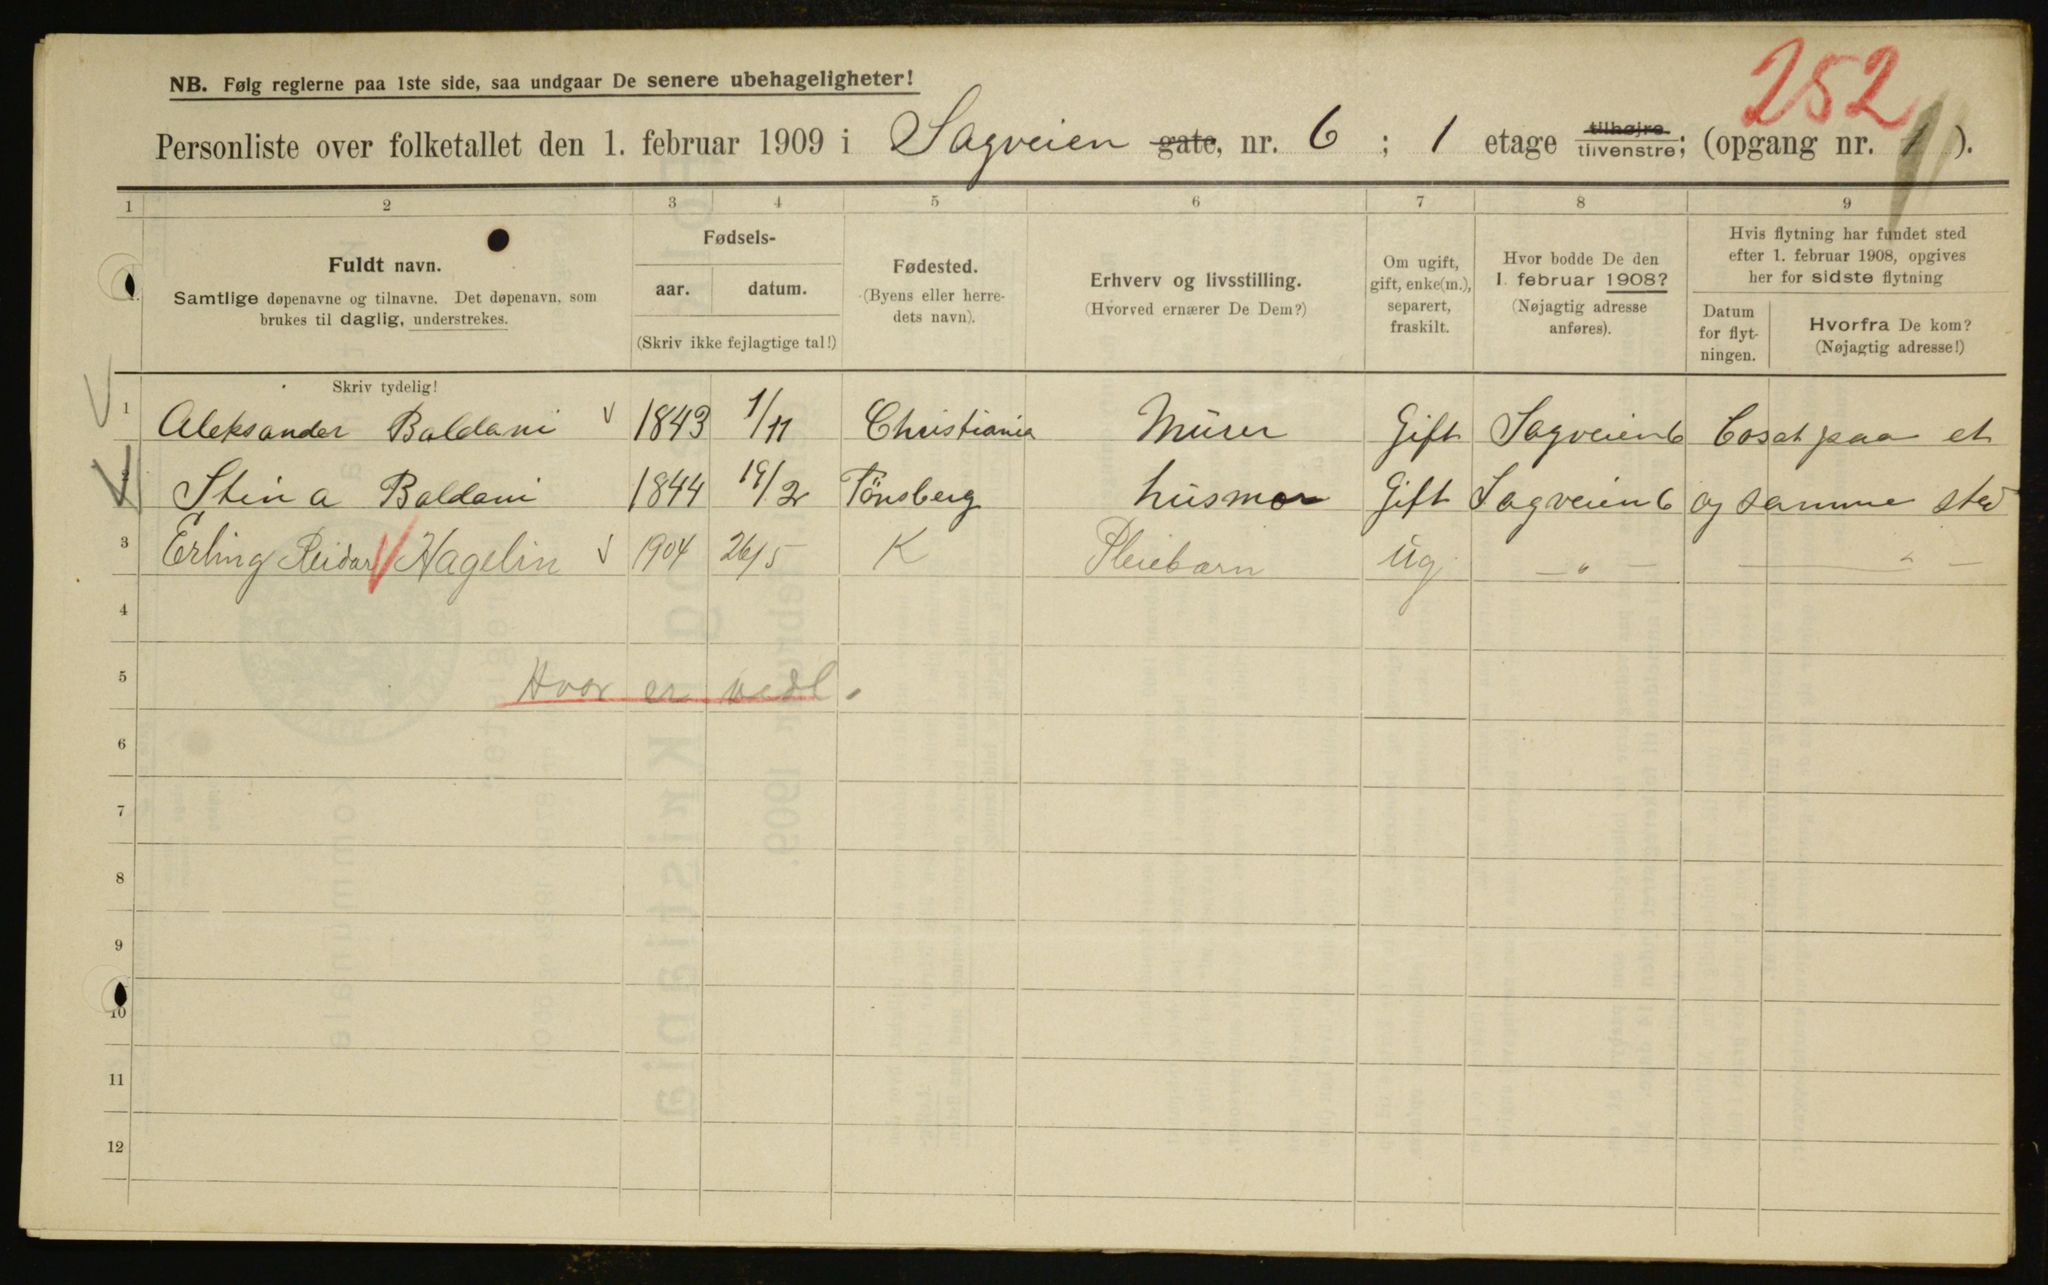 252
NB. Følg reglerne paa 1ste side, saa undgaar De senere ubehageligheter!
Personliste over folketallet den 1. februar 1909 i Sagveien gate, nr. 6 ; 1 etage tilhøjre tilvenstre; (opgang nr. 1 ).
1 2 3 4 5 6 7 8 9
Fuldt navn.
Samtlige døpenavne og tilnavne. Det døpenavn, som
brukes til daglig, understrekes.
Skriv tydelig!
Fødsels-
aar. datum.
(Skriv ikke fejlagtige tal!)
Fødested.
(Byens eller herre-
dets navn).
Erhverv og livsstilling.
(Hvorved ernærer De Dem?)
Om ugift,
gift, enke(m.),
separert,
fraskilt.
Hvor bodde De den
1. februar 1908?
(Nøjagtig adresse
anføres).
Hvis flytning har fundet sted
efter 1. februar 1908, opgives
her for sidste flytning
Datum
for flyt-
ningen.
Hvorfra De kom?
(Nøjagtig adresse!)
1 Aleksander Baldani 1843 1/11 Christiania Murer Gift Sagveien 6 Bosat paa et
2 Stina Baldani 1844 19/2 Tönsberg husmor Gift Sagveien 6 og samme sted
3 Erling Reidar Hagelin 1904 26/5 K Pleiebarn ug — " — — " —
4
5 Hvor er vedl.
6
7
8
9
10
11
12